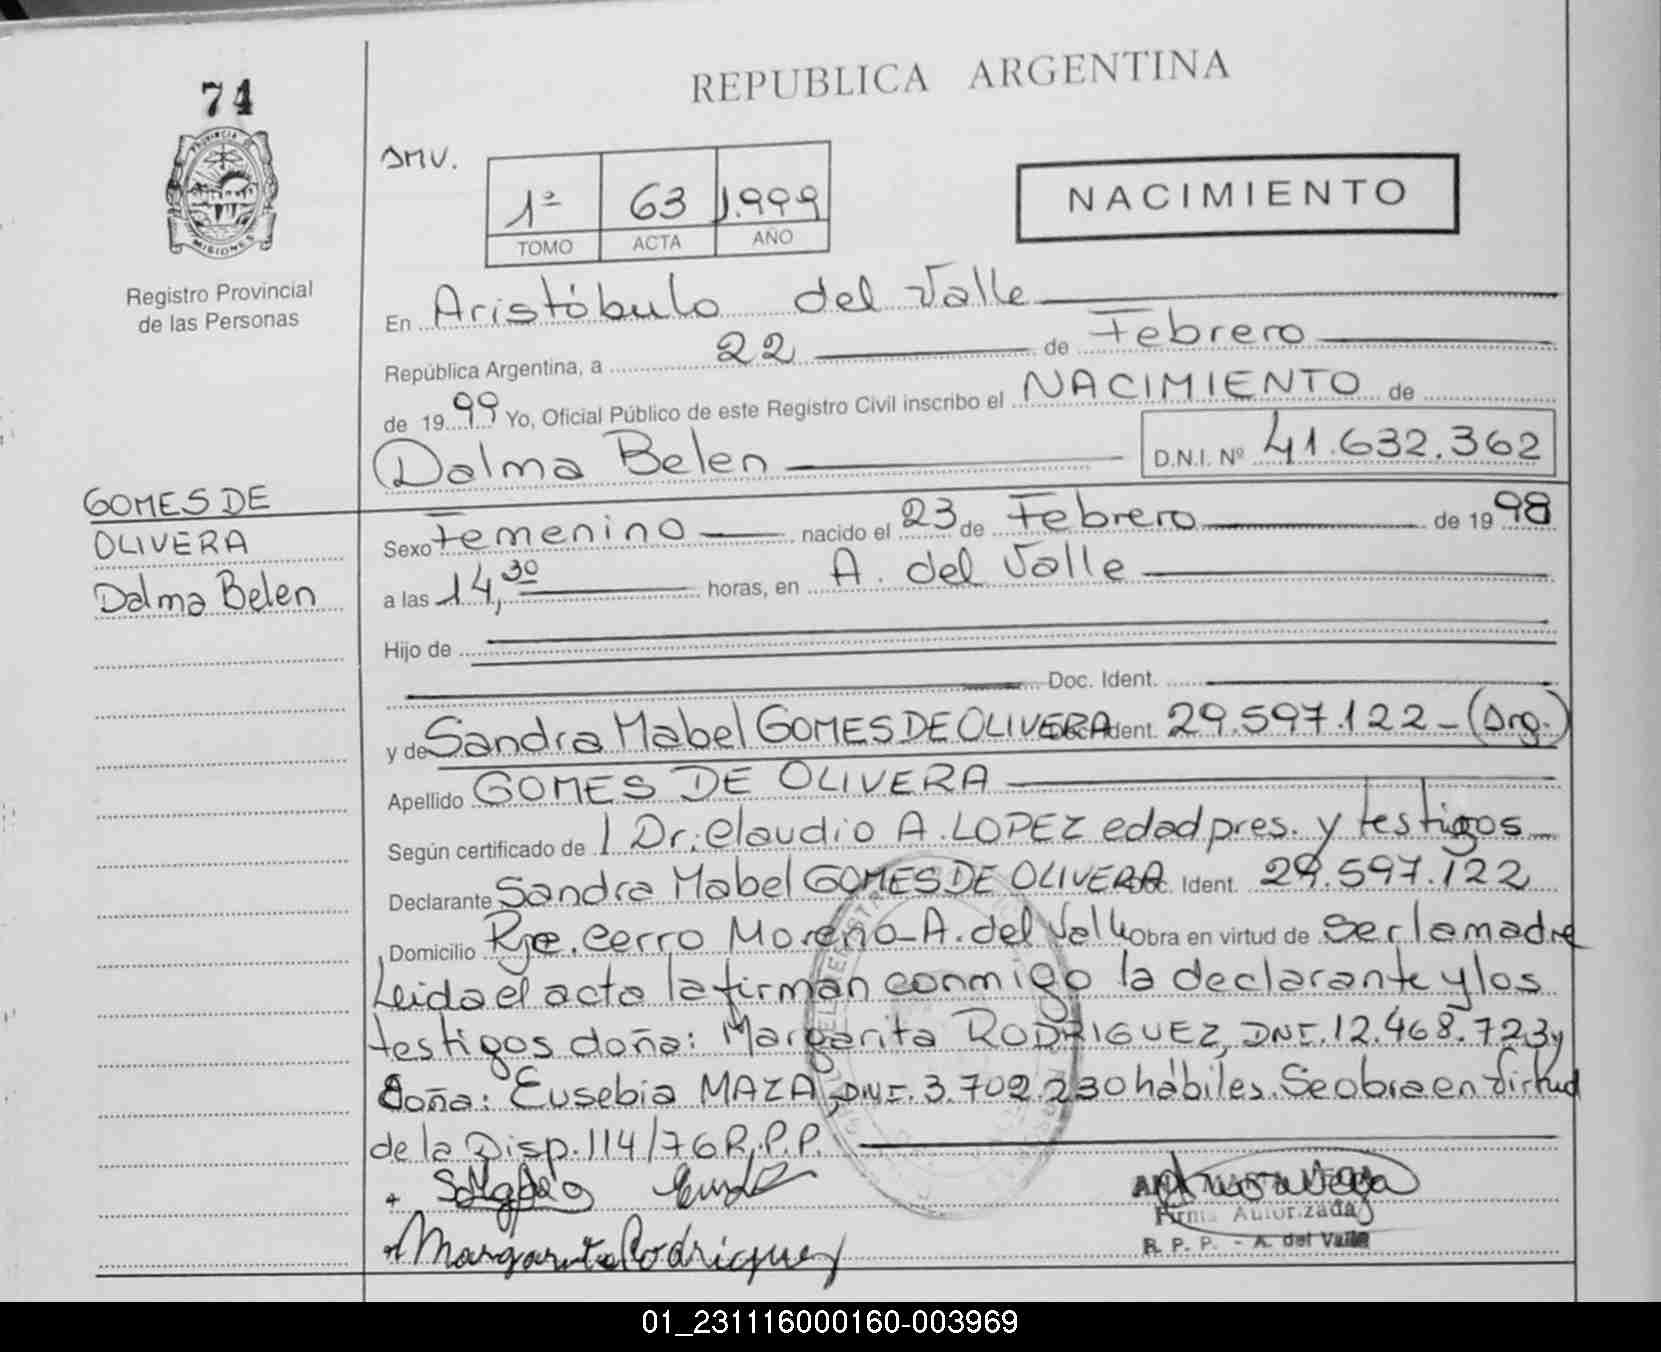 REPUBLICA ARGENTINA
74
PROVINCIA DE
MISIONES
Registro Provincial
de las Personas
SMV.
1ª 63 1.999
TOMO ACTA AÑO
NACIMIENTO
En Aristóbulo del Valle
República Argentina, a 22 de Febrero
de 1999 Yo, Oficial Público de este Registro Civil inscribo el NACIMIENTO de
Dalma Belen D.N.I. Nº 41.632.362
GOMES DE
OLIVERA
Dalma Belen
Sexo Femenino nacido el 23 de Febrero de 1998
a las 14,30 horas, en A. del Valle
Hijo de
Doc. Ident.
y de Sandra Mabel GOMES DE OLIVERA Ident. 29.597.122-(Arg.)
Apellido GOMES DE OLIVERA
Según certificado de l Dr. Claudio A. LOPEZ edad pres. y testigos
Declarante Sandra Mabel GOMES DE OLIVERA Doc. Ident. 29.597.122
Domicilio Pje. Cerro Moreno-A. del Valle Obra en virtud de ser la madre
Leida el acta la firman conmigo la declarante y los
testigos doña: Margarita RODRIGUEZ, DNI. 12.468.723 y
doña: Eusebia MAZA, DNI. 3.702.230 hábiles. Se obra en virtud
de la Disp. 114/76 R.P.P.
Margarita Rodriguez
Firma Autorizada
R. P. P. - A. del Valle
01_231116000160-003969